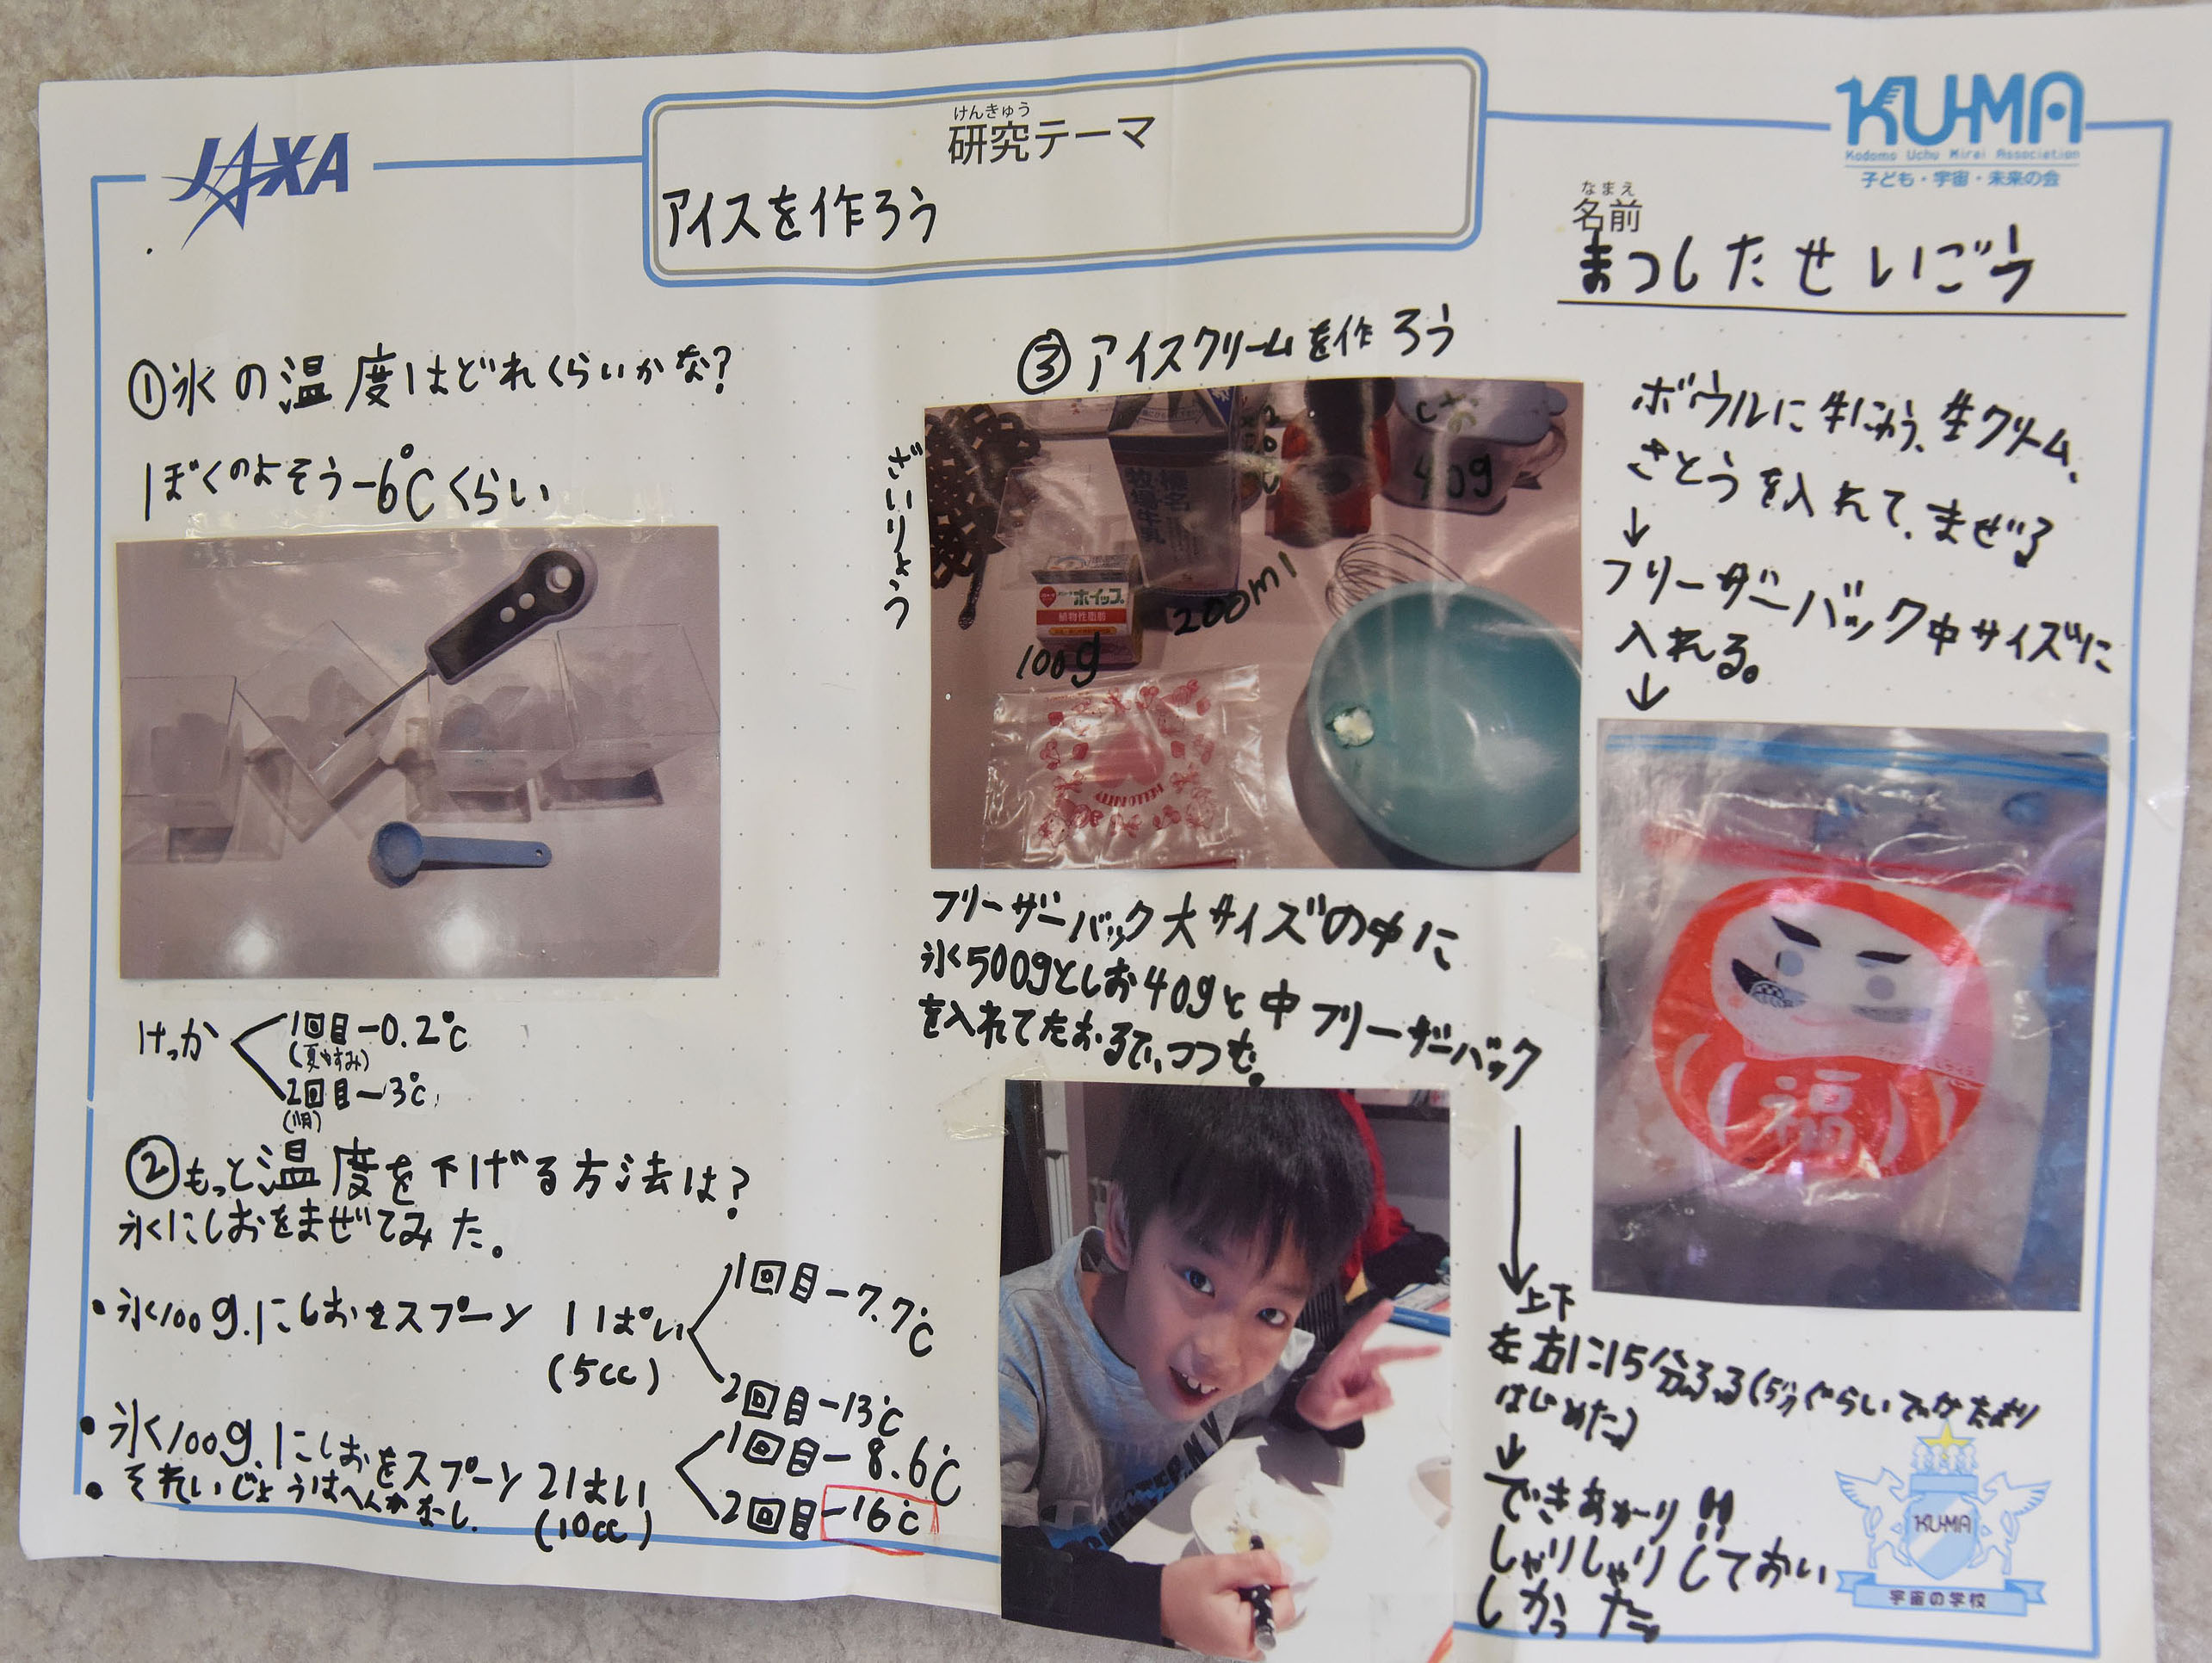 JAXA
けんきゅう
研究テーマ
アイスを作ろう
KU-MA
Kodomo Uchu Mirai Association
子ども・宇宙・未来の会
なまえ
名前
まつしたせいごう
①氷の温度はどれくらいかな?
ぼくのよそう-6℃くらい
けっか
1回目-0.2℃
(夏やすみ)
2回目-3℃
②もっと温度を下げる方法は?
氷にしおをまぜてみた。
・氷100g.にしおをスプーン 1ぱい
(5cc)
1回目-7.7℃
2回目-13℃
・氷100g.にしおをスプーン2はい
(10cc)
1回目-8.6℃
2回目-16℃
・それいじょうはへんかなし.
③アイスクリームを作ろう
ざいりょう
しお
40g
ホイップ
植物性脂肪
200ml
100g
フリーザーバック大サイズの中に
氷500gとしお40gと中フリーザーバック
を入れてたおるで、つつむ。
ボウルに牛にゅう、生クリーム、
さとうを入れて、まぜる
↓
フリーザーバック中サイズに
入れる。
↓
福
↓
上下
左右に15分ふる(5分ぐらいでかたまり
はじめた)
↓
できあがり!!
しゃりしゃりしておい
しかった。
KU-MA
宇宙の学校